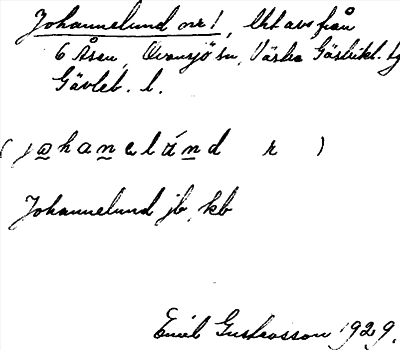 Johannelund nr 1, lht avs från
6 Åsen, Ovansjö sn, Västra Gästrikl. tg
Gävleb. l.
(johanelánd r)
Johannelund jb, kb
Emil Gustavsson 1929.